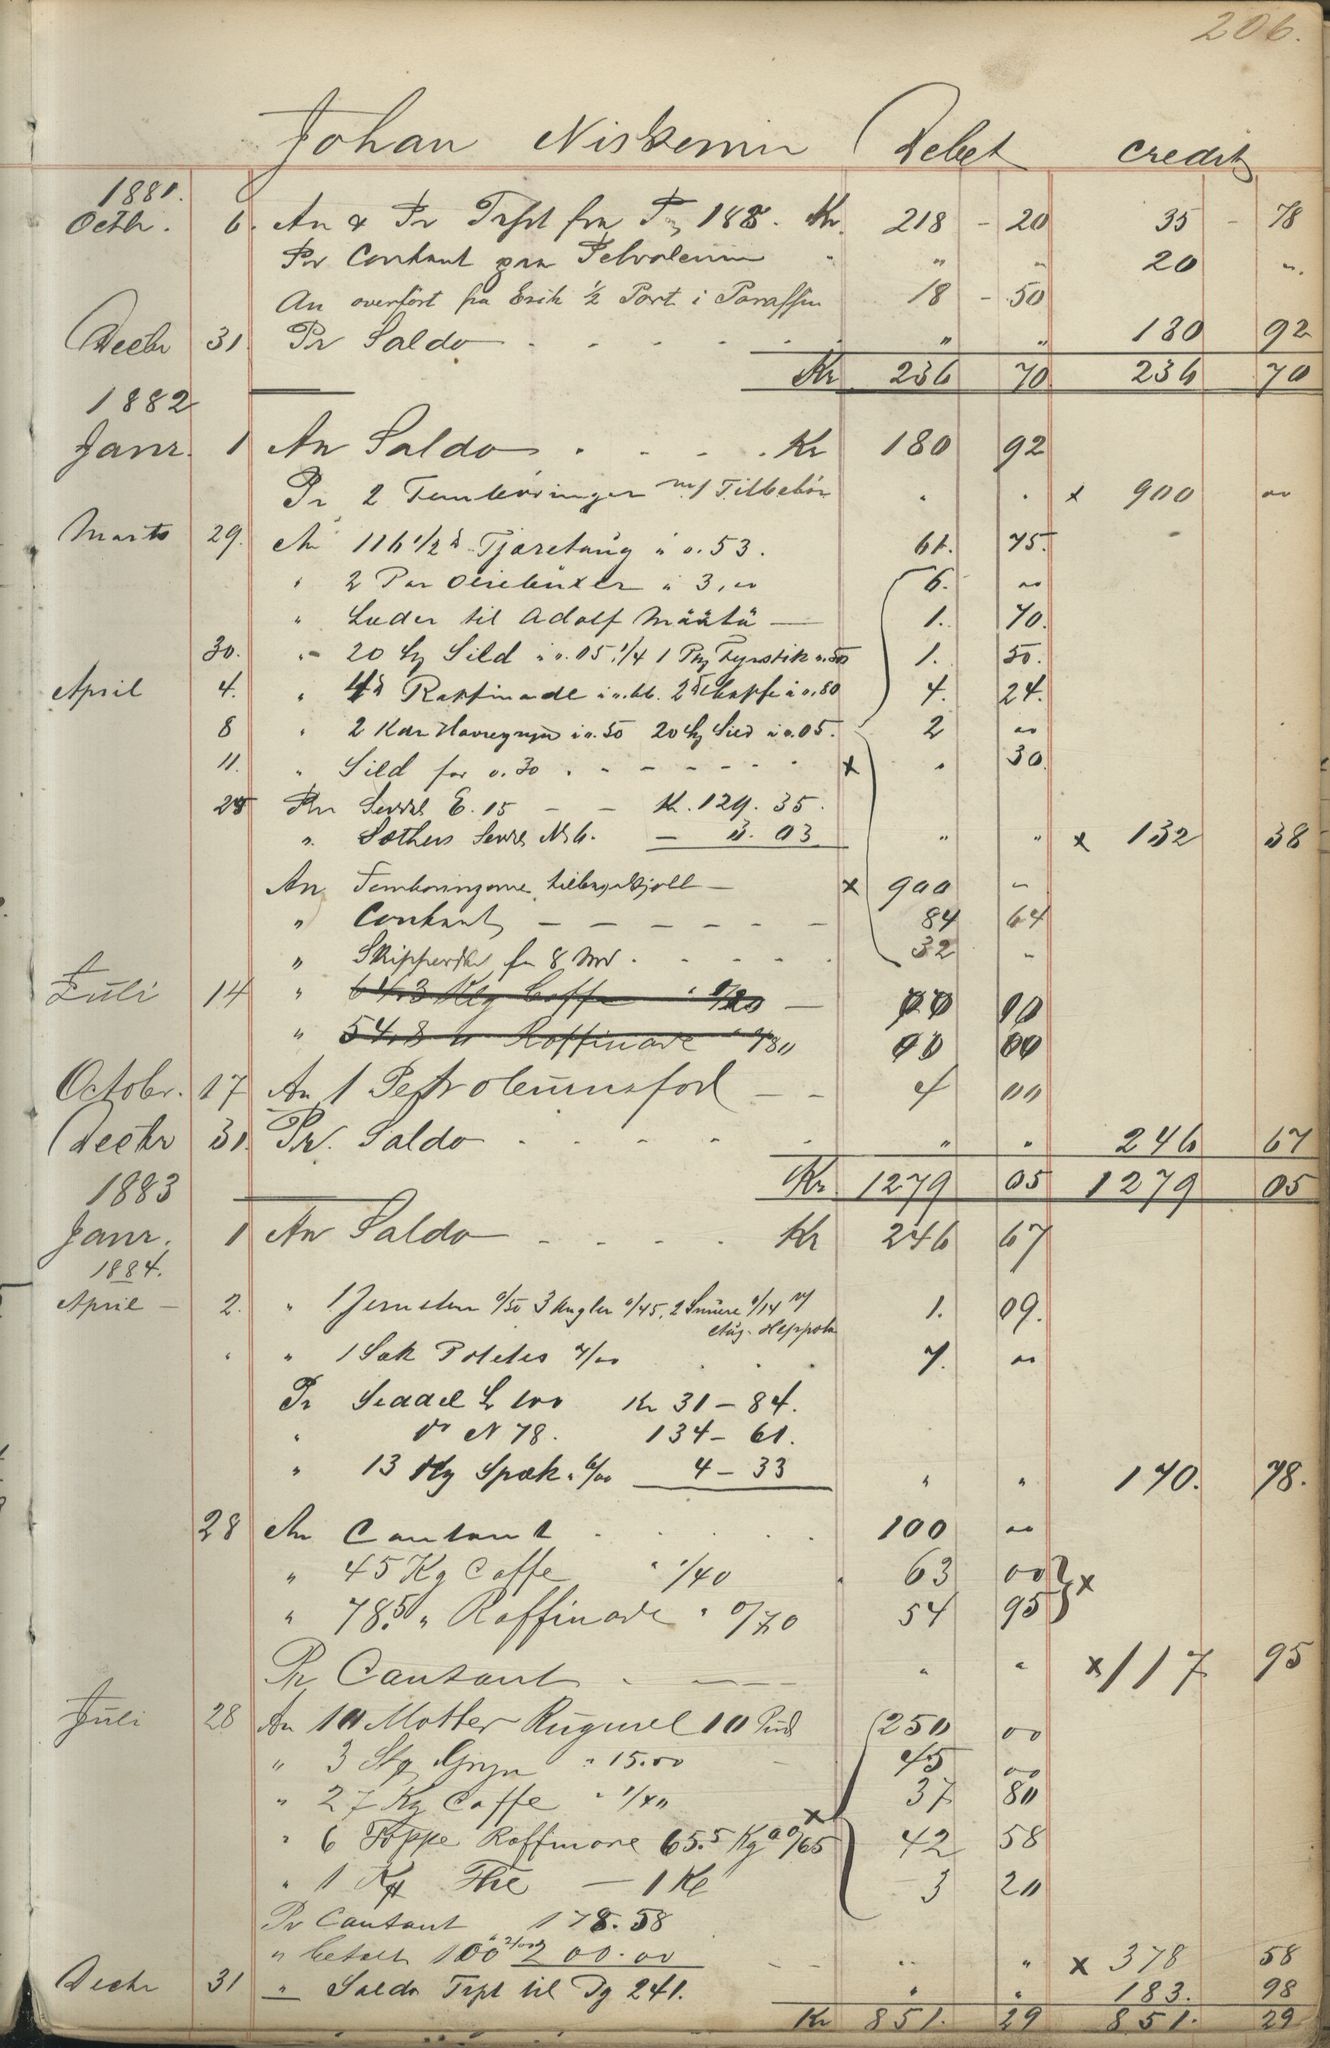 206.
Johan Niskemin Debet Credit
1881.
Octbr. 6. An & Pr Trpt fra 188 Kr. 218 - 20 35 - 78
Pr Contant paa Petroleum " " " 20 ".
An overfört fra Erik 1/2 Part i Paraffin 18 - 50
Decbr 31 Pr Saldo " " 180 92
Kr 236 70 236 70
1882
Janr. 1 An Saldo Kr 180 92
Pr 2 Femböringer m/ Tilbehör x 900 00
Marts 29. An 116 1/2 Tjæretaug a 0.53. 61. 75.
" 2 Par Oliebuxer a 3,00 6. 00
" Læder til Adolf Määtä 1. 70.
30. " 20 Kg Sild a 0.05, 1/4 1 Pk Fyrstik 0.50 1. 50.
April 4. " 4 Raffinade a 0.66. 2 Kaffe a 0.80 4. 24.
8 " 2 Kar Havregryn a 0.50 20 Kg Sild a 0.05. 2 00
11. " Sild for 0.30 x " 30
25 Pr Seddel E. 15 K. 129. 35.
" Sæthers Seddel No 6. 3. 03 " " x 132 38
An Femböringerne x 900 "
" Contant 84 64
" for 8 Md 32 "
Juli 14 " 64.3 Klg Caffe 00 00
" 54.8 " Raffinade " 0/80 00 00
Octobr. 17 An 1 Petroleumsfad 4 00
Decbr 31. Pr. Saldo " " 246 67
Kr. 1279 05 1279 05
1883
Janr. 1 An Saldo Kr 246 67
1884.
April - 2. " 1 Jernsten 0/50 3 Angler 0/45, 2 Snöre 0/14 v/ 1. 09.
Aug. Heppola
" " 1 Sæk Potetes 7/00 7. 00
Pr Seddel L 100 Kr 31 - 84.
" do N 78. 134 - 61.
" 13 Kg Spæk 4 - 33 " " 170. 78.
28 An Contant 100 00
" 45 Kg Caffe " 1/40 63 00 x
" 78.5 " Raffinade " 0/70 54 95
Pr Contant " " x 117 95
Juli 28 An 10 Matter Rugmel 10 Pud 250 00
" 3 Gryn " 15.00 45 00
" 27 Kg Caffe " 1/40 x 37 80
" 6 Toppe Raffinade 65.5 Kg a 0/65 42 58
" 1 Kg The - 1 Kg 3 20
Pr Contant 178.58
" betalt 100 200.00 " " x 378 58
Decbr 31 " Saldo Trpt til Pg 241. " " 183. 98
Kr 851. 29 851. 29